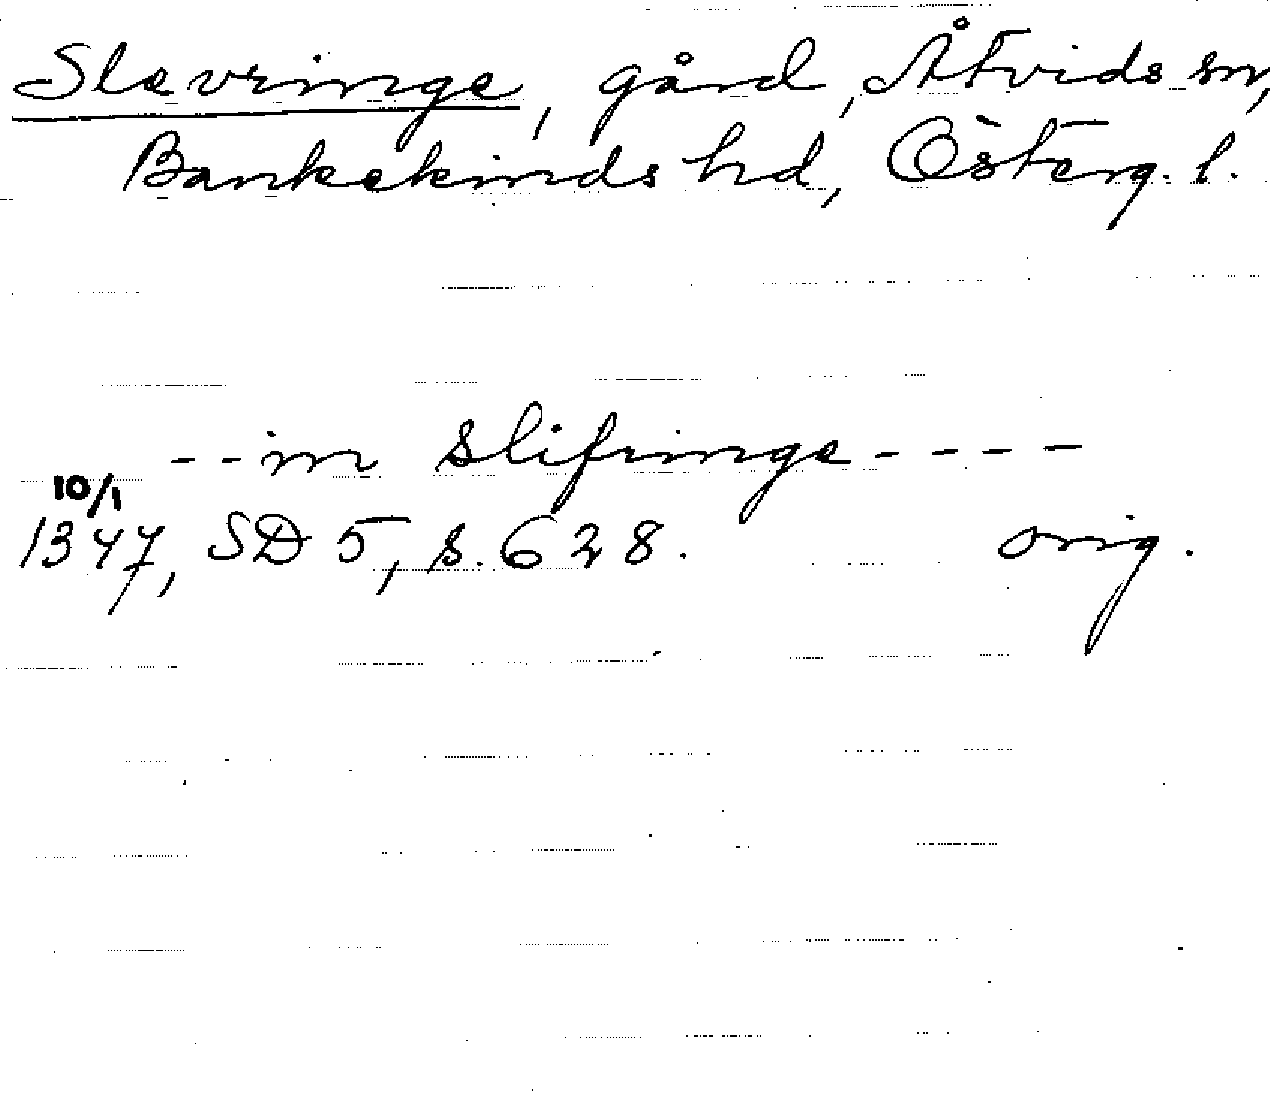 Slevringe, gård, Åtvids sn,
Bankekinds hd, Österg. l.
--in slifringe----
10/1
1347, SD 5, s. 628. orig.